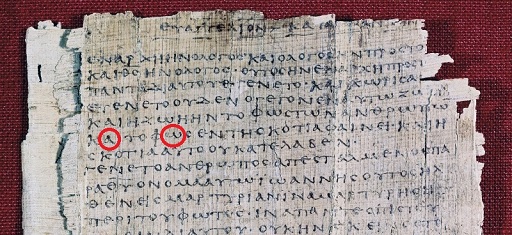 ΕΥΑΓΓΕΛΙΟΝ ΚΑ
ΕΝ ΑΡΧΗ ΗΝ Ο ΛΟΓΟϹ ΚΑΙ Ο ΛΟΓΟϹ ΗΝ ΠΡΟϹ ΤΟ
ΚΑΙ ΘϹ ΗΝ Ο ΛΟΓΟϹ ΟΥΤΟϹ ΗΝ ΕΝ ΑΡΧΗ ΠΡΟϹ
ΠΑΝΤΑ ΔΙ ΑΥΤΟΥ ΕΓΕΝΕΤΟ ΚΑΙ ΧΩΡΙϹ Α
ΕΓΕΝΕΤΟ ΟΥΔΕΝ Ο ΓΕΓΟΝΕΝ ΕΝ ΑΥΤΩ ΖΩ
ΚΑΙ Η ΖΩΗ ΗΝ ΤΟ ΦΩϹ ΤΩΝ ΑΝΘΡΩΠΩ
ΚΑΙ ΤΟ ΦΩϹ ΕΝ ΤΗ ϹΚΟΤΙΑ ΦΑΙΝΕΙ ΚΑΙ Η
ϹΚΟΤΙΑ ΑΥΤΟ ΟΥ ΚΑΤΕΛΑΒΕΝ
ΓΕΝΕΤΟ ΑΝΘΡΩΠΟϹ ΑΠΕϹΤΑΛΜΕΝΟϹ ΠΑ
ΡΑ ΘΥ ΟΝΟΜΑ ΑΥΤΩ ΙΩΑΝΝΗϹ ΟΥΤΟϹ ΗΛ
ΘΕΝ ΕΙϹ ΜΑΡΤΥΡΙΑΝ ΙΝΑ ΜΑΡΤΥΡΗϹΗ
ΠΕΡΙ ΤΟΥ ΦΩΤΟϹ ΙΝΑ ΠΑΝΤΕϹ ΠΙϹΤΕΥ
ΟΥΚ ΗΝ ΕΚΕΙ